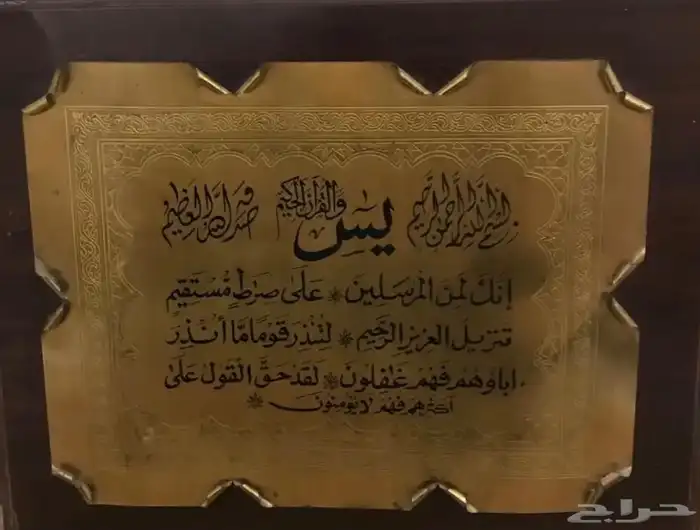 بسم الله الرحمن الرحيم يس والقرآن الحكيم صدق الله العظيم
إنك لمن المرسلين * على صرط مستقيم
تنزيل العزيز الرحيم * لتنذر قوما ما أنذر
اباؤهم فهم غفلون * لقد حق القول على
أكثرهم فهم لا يؤمنون *
حراج